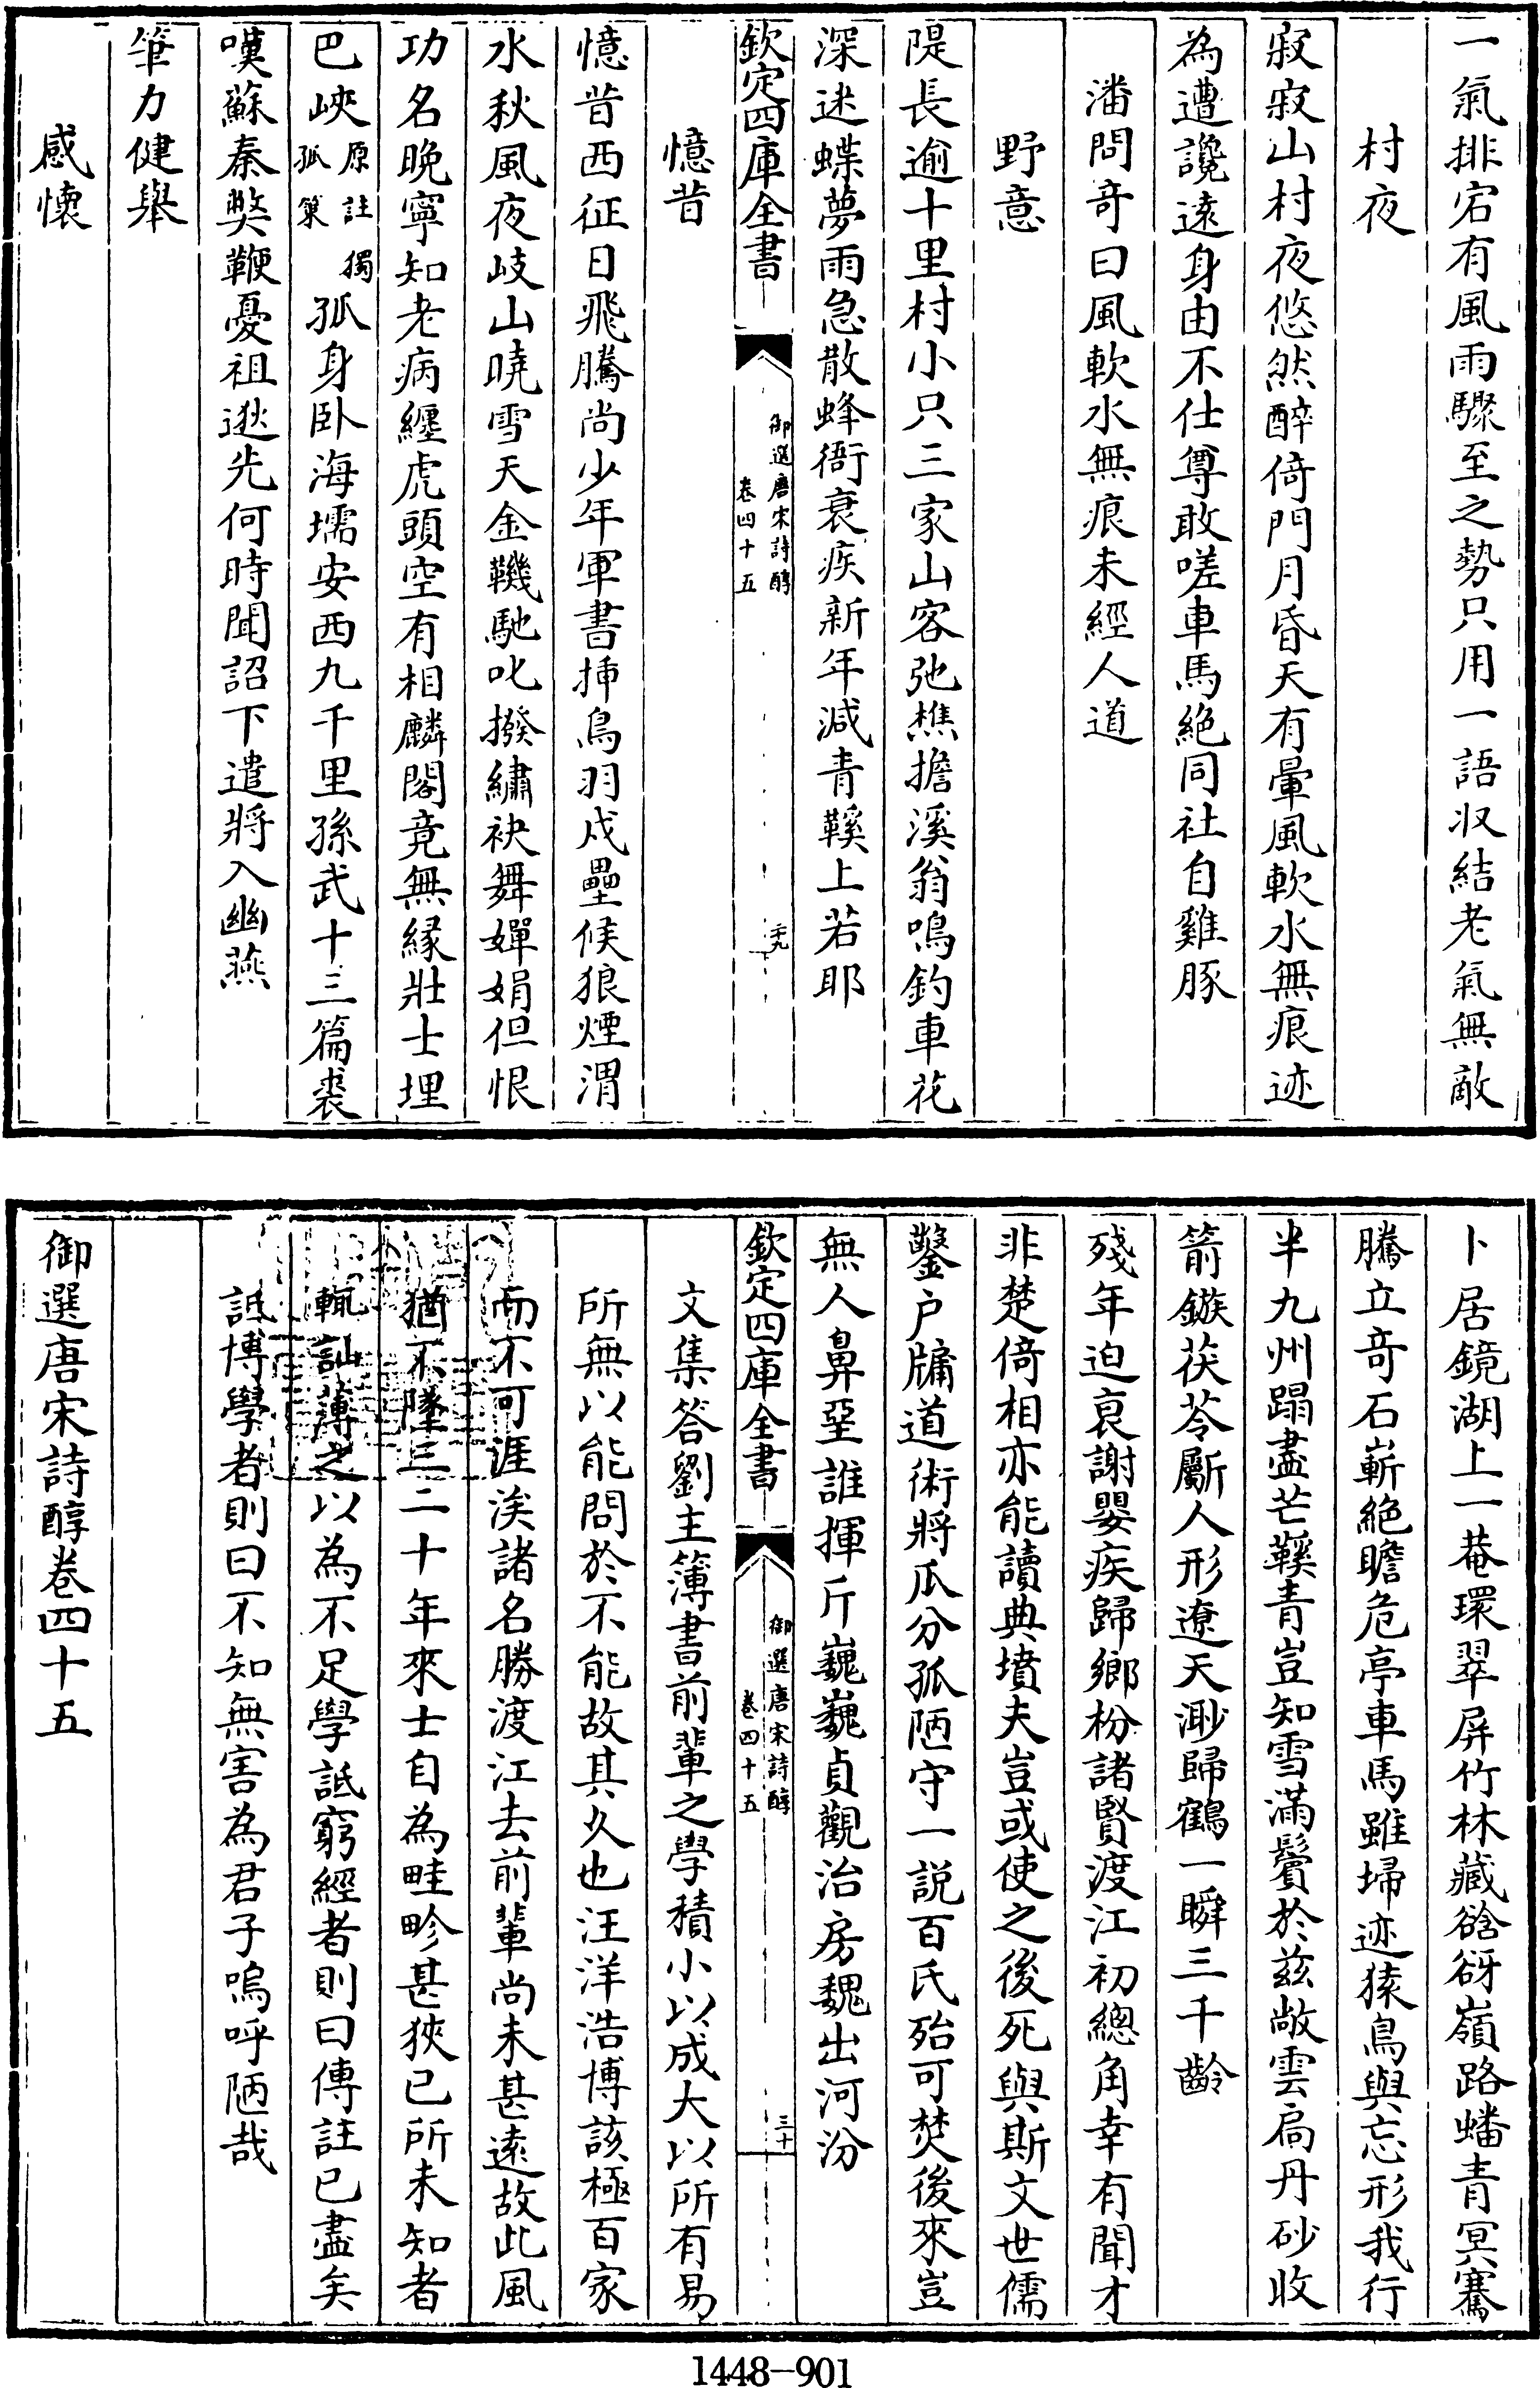 一氣排宕有風雨驟至之勢只用一語収結老氣無敵
村夜
寂寂山村夜悠然醉倚門月昏天有暈風軟水無痕迹
為遭讒遠身由不仕尊敢嗟車馬絕同社自雞豚
潘問竒曰風軟水無痕未經人道
野意
隄長逾十里村小只三家山客弛樵擔溪翁鳴釣車花
深迷蝶夢雨急散蜂衙衰疾新年減青鞵上若耶
欽定四庫全書
御選唐宋詩醇
卷四十五
二十九
憶昔
憶昔西征日飛騰尚少年軍書揷鳥羽戍壘候狼煙渭
水秋風夜岐山曉雪天金鞿馳叱撥繡袂舞嬋娟但恨
功名晚寧知老病纏虎頭空有相麟閣竟無緣壯士埋
巴峽
原註獨
孤策
孤身卧海壖安西九千里孫武十三篇裘
嘆蘇秦獘鞭憂祖逖先何時聞詔下遣將入幽燕
筆力健舉
感懷
卜居鏡湖上一菴環翠屏竹林藏谽谺嶺路蟠青冥騫
騰立竒石嶄絕瞻危亭車馬雖埽迹猿鳥與忘形我行
半九州蹋盡芒鞵青豈知雪滿鬢於兹敞雲扃丹砂收
箭鏃茯苓斸人形遼天渺歸鶴一瞬三千齡
殘年迫衰謝嬰疾歸鄉枌諸賢渡江初總角幸有聞才
非楚倚相亦能讀典墳夫豈或使之後死與斯文世儒
鑿户牖道術將瓜分孤陋守一説百氏殆可焚後來豈
無人鼻堊誰揮斤巍巍貞觀治房魏出河汾
欽定四庫全書
御選唐宋詩醇
卷四十五
三十
文集答劉主簿書前輩之學積小以成大以所有易
所無以能問於不能故其久也汪洋浩博該極百家
而不可涯涘諸名勝渡江去前輩尚未甚遠故此風
猶不墜三二十年來士自為畦畛甚狹已所未知者
輒訕薄之以為不足學詆窮經者則曰傳註已盡矣
詆博學者則曰不知無害為君子嗚呼陋哉
御選唐宋詩醇卷四十五
1448-901